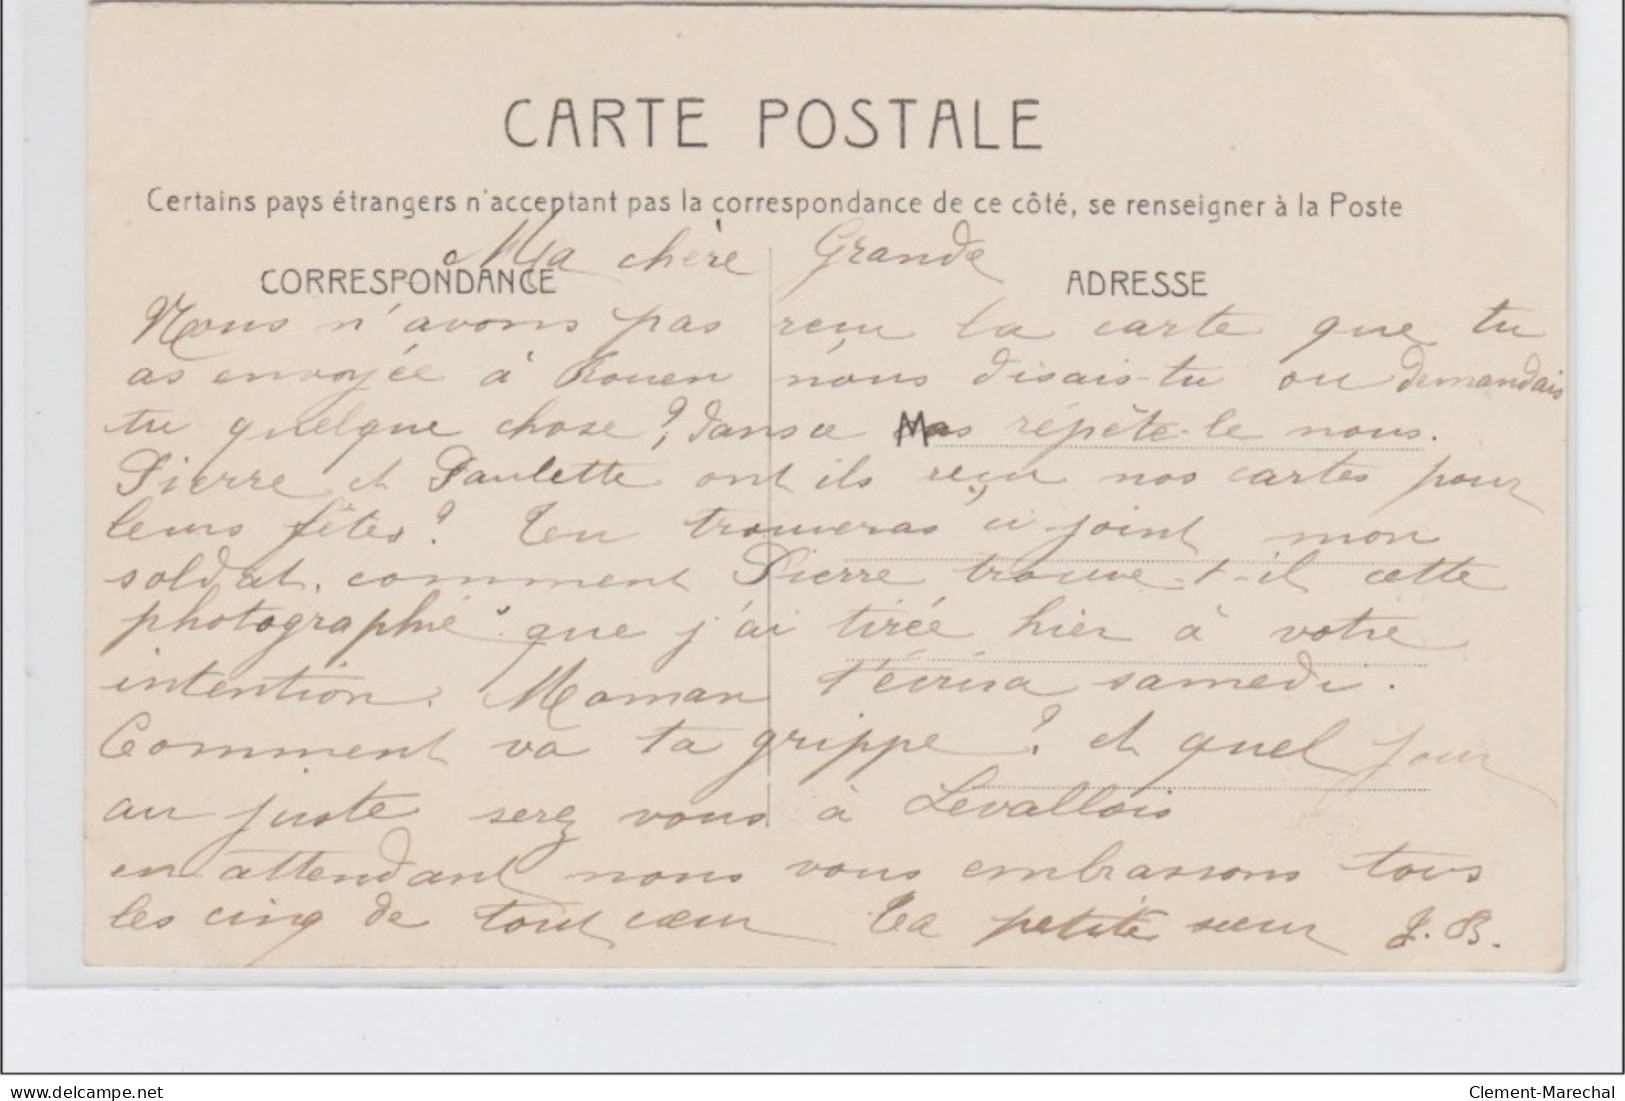 CARTE POSTALE
Certains pays étrangers n'acceptant pas la correspondance de ce côté, se renseigner à la Poste
Ma chère Grande
CORRESPONDANCE
ADRESSE
Nous n'avons pas reçu la carte que tu
as envoyée à Rouen nous disais-tu ou demandais
tu quelque chose ? dans ce cas répète-le nous.
Pierre et Paulette ont ils reçu nos cartes pour
leurs fêtes ? Tu trouveras ci-joint mon
soldat. comment Pierre trouve-t-il cette
photographie que j'ai tirée hier à votre
intention. Maman t'écrira samedi.
Comment va ta grippe ? et quel jour
au juste serez vous à Levallois
en attendant nous vous embrassons tous
les cinq de tout cœur Ta petite sœur J. B.
delcampe.net
Clement-Marechal